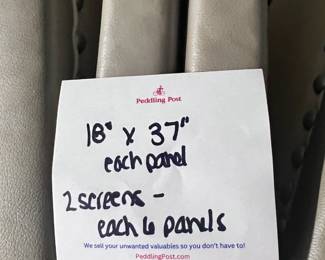 Peddling Post
18" x 37"
each panel
2 screens -
each 6 panels
We sell your unwanted valuables so you don't have to!
PeddlingPost.com